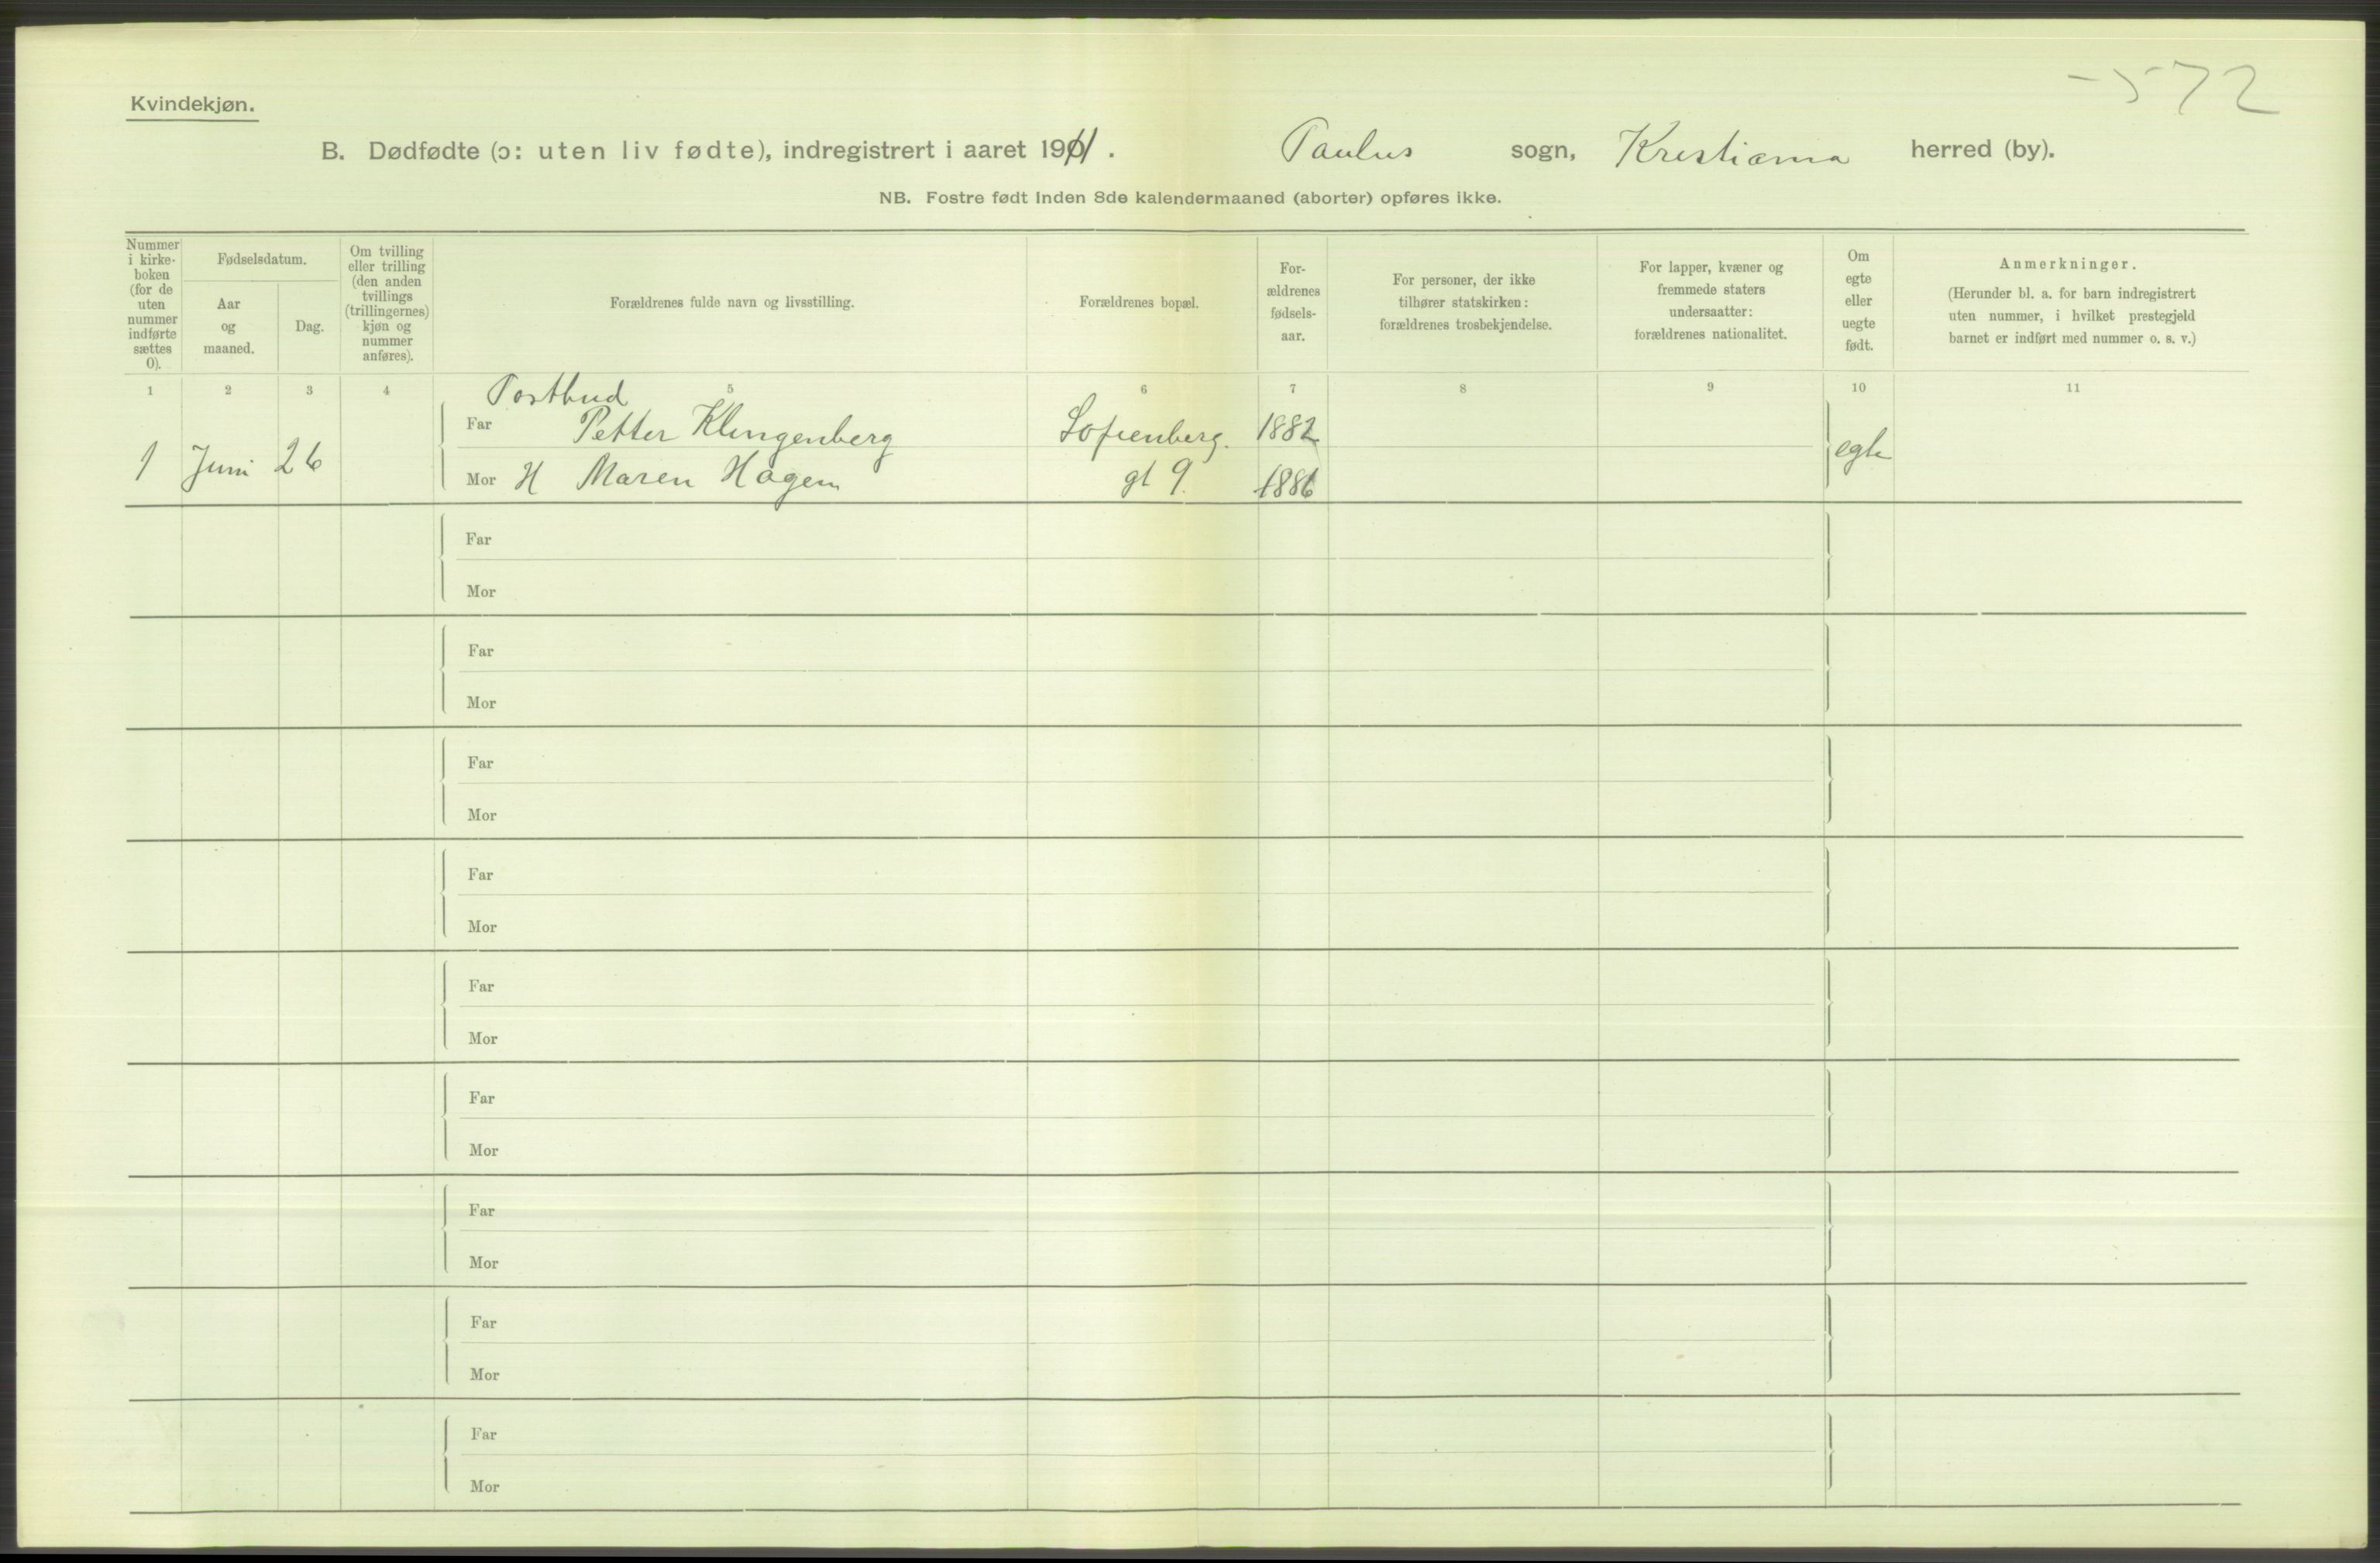 572
Kvindekjøn.
B. Dødfødte (ɔ: uten liv fødte), indregistrert i aaret 1911. Paulus sogn, Kristiania herred (by).
NB. Fostre født inden 8de kalendermaaned (aborter) opføres ikke.
Nummer i kirke-
boken
(for de
uten
nummer
indførte
sættes
0).
Fødselsdatum.
Aar
og
maaned.
Dag.
Om tvilling
eller trilling
(den anden
tvillings
(trillingernes)
kjøn og
nummer
anføres).
Forældrenes fulde navn og livsstilling.
Forældrenes bopæl.
For-
ældrenes
fødsels-
aar.
For personer, der ikke
tilhører statskirken:
forældrenes trosbekjendelse.
For lapper, kvæner og
fremmede staters
undersaatter:
forældrenes nationalitet.
Om
egte
eller
uegte
født.
Anmerkninger.
(Herunder bl. a. for barn indregistrert
uten nummer, i hvilket prestegjeld
barnet er indført med nummer o. s. v.)
1 2 3 4 5 6 7 8 9 10 11
Postbud
Far Petter Klingenberg Sofienberg. 1882
1 Juni 26 egte
Mor H Maren Hagen gt 9. 1886
Far
Mor
Far
Mor
Far
Mor
Far
Mor
Far
Mor
Far
Mor
Far
Mor
Far
Mor
Far
Mor